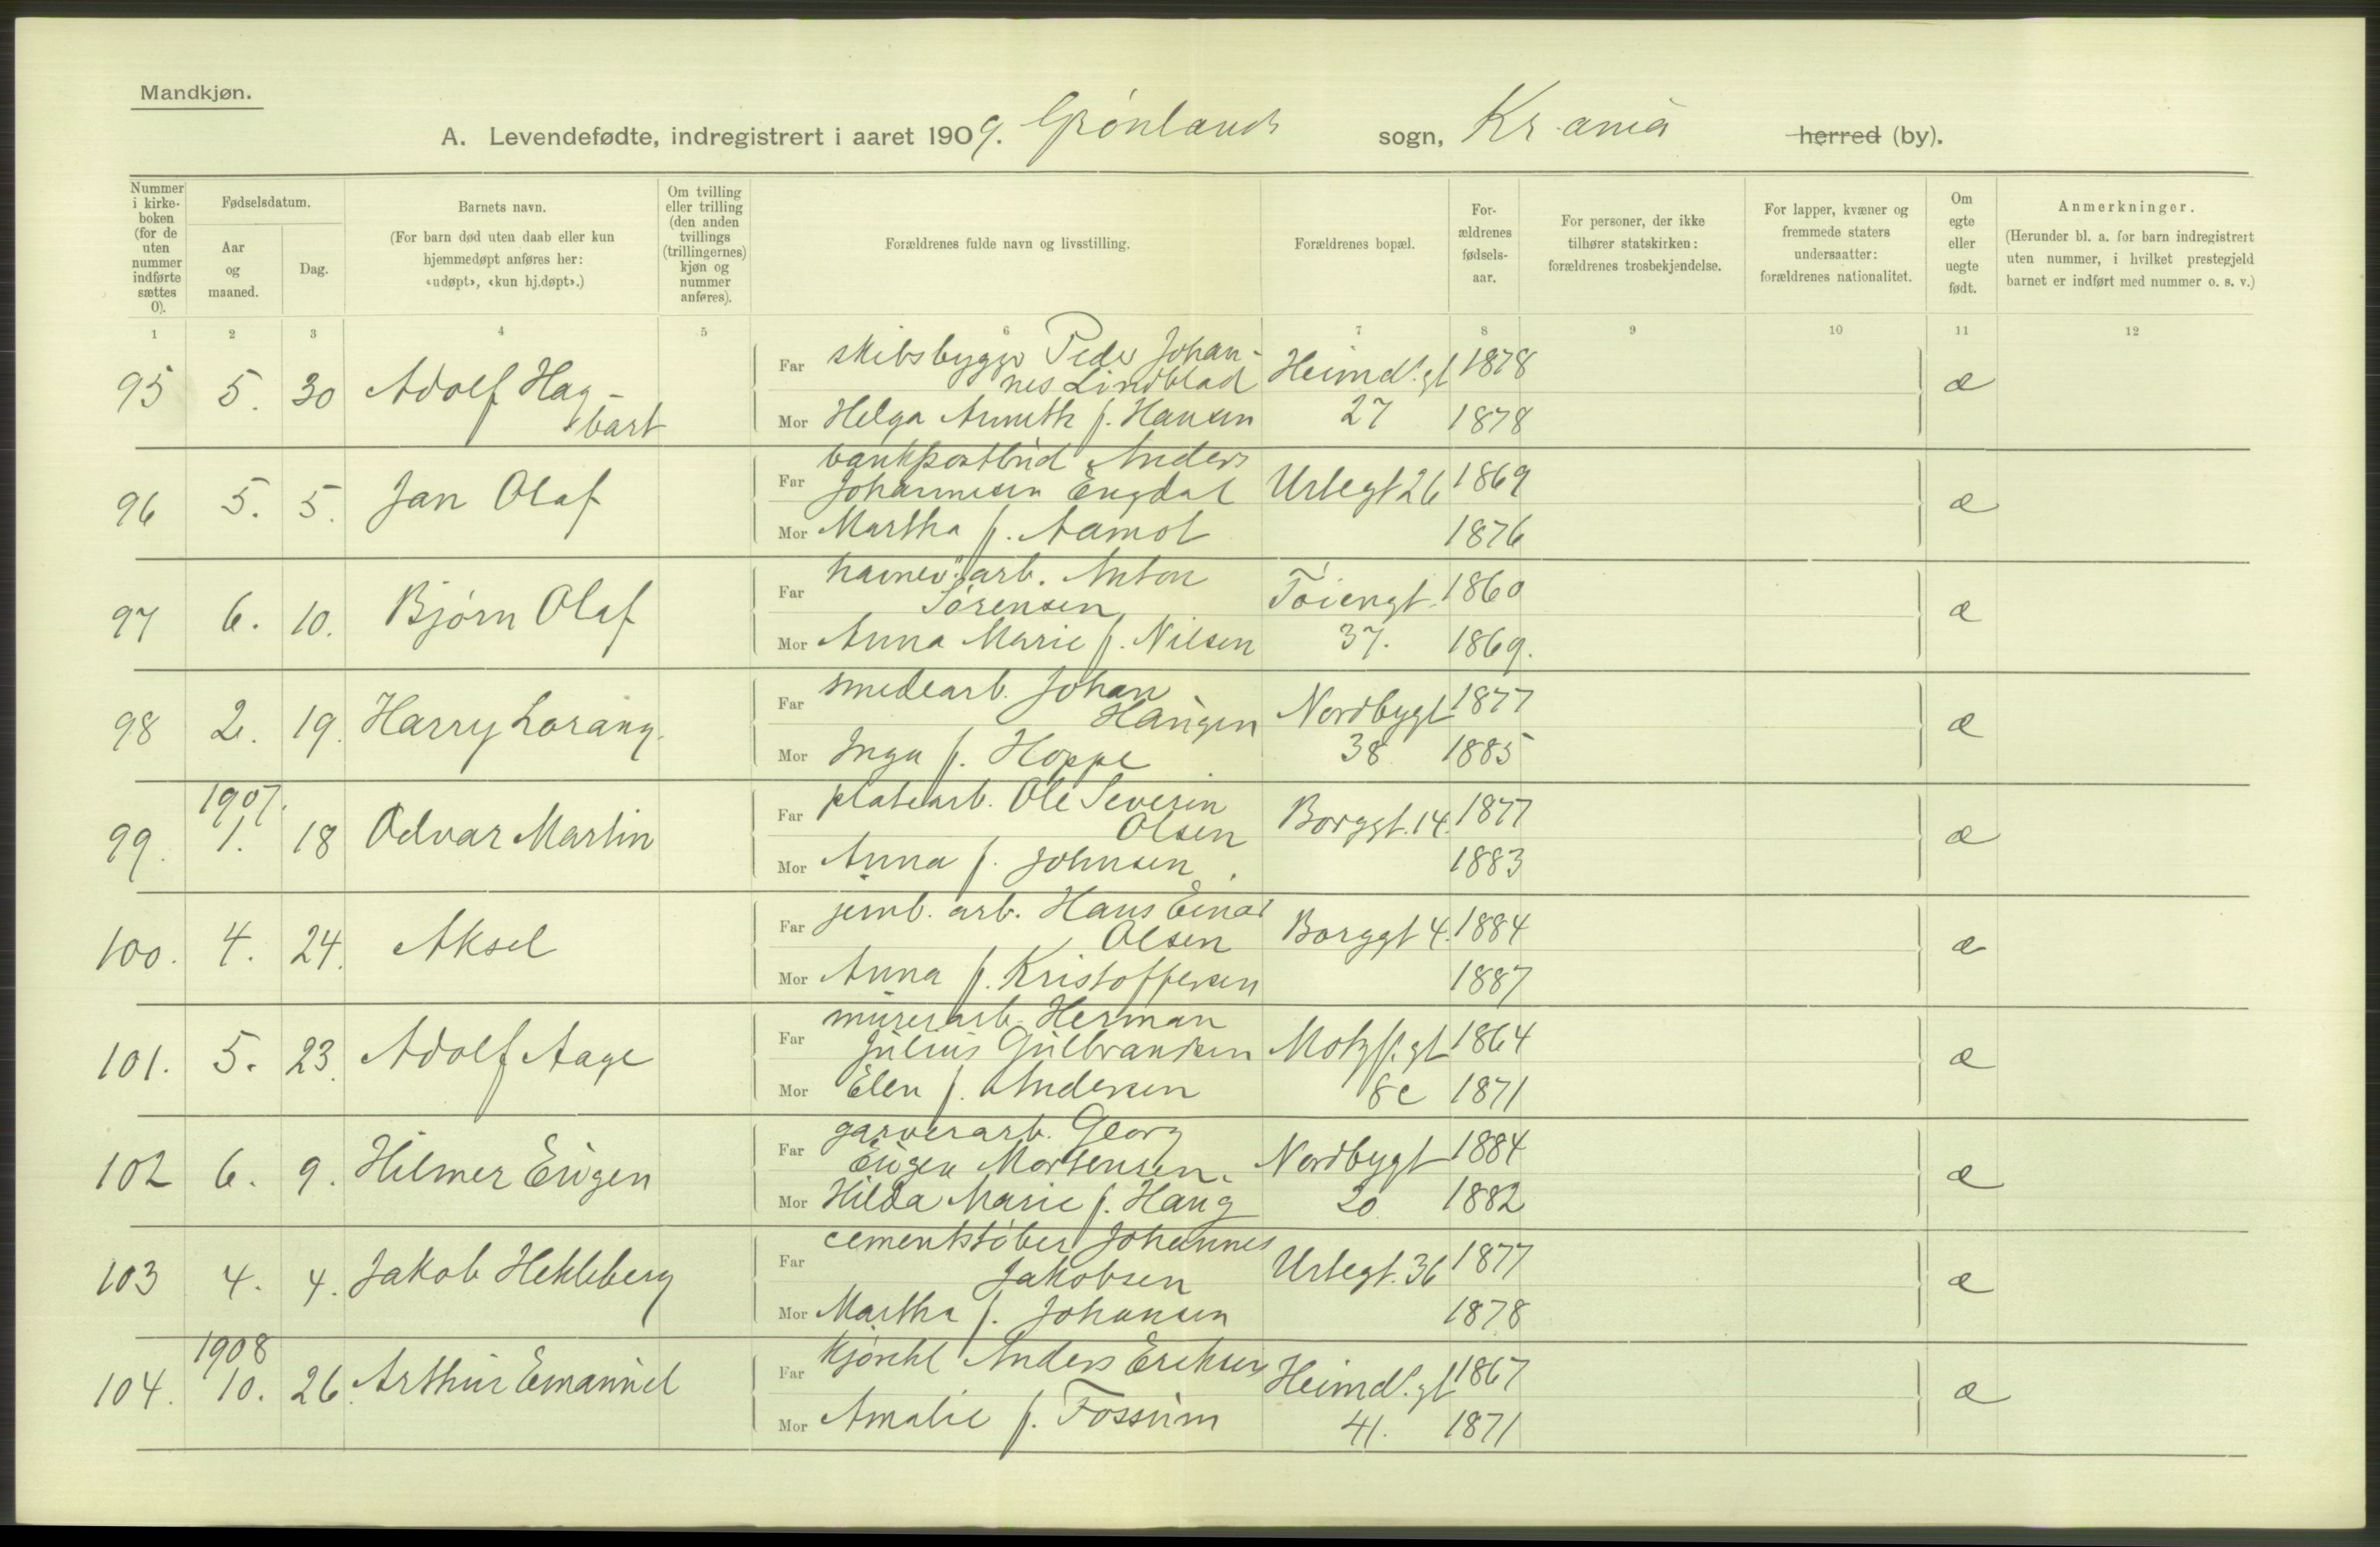 Mandkjøn.
A. Levendefødte, indregistrert i aaret 1909. Grönlands sogn, Kr.ania herred (by).
Nummer i kirke-boken (for de uten nummer indførte sættes 0).
Fødselsdatum.
Aar og maaned.
Dag.
Barnets navn.
(For barn død uten daab eller kun hjemmedøpt anføres her: «udøpt», «kun hj.døpt».)
Om tvilling eller trilling (den anden tvillings (trillingernes) kjøn og nummer anføres).
Forældrenes fulde navn og livsstilling.
Forældrenes bopæl.
For-ældrenes fødsels-aar.
For personer, der ikke tilhører statskirken: forældrenes trosbekjendelse.
For lapper, kvæner og fremmede staters undersaatter: forældrenes nationalitet.
Om egte eller uegte født.
Anmerkninger.
(Herunder bl. a. for barn indregistrert uten nummer, i hvilket prestegjeld barnet er indført med nummer o. s. v.)
1 2 3 4 5 6 7 8 9 10 11 12
95 5. 30 Adolf Hag-
bart
Far skibsbygger Peder Johan-
nes Lindblad Heimd.gt 1878 æ
Mor Helga Annette f. Hansen 27 1878
96 5. 5. Jan Olaf
Far bankpostbud Anders
Johannesen Engdal Urtegt 26 1869 æ
Mor Martha f. Aamot 1876
97 6. 10. Bjørn Olaf
Far havnev.arb. Anton
Sørensen Töiengt. 1860 æ
Mor Anna Marie f. Nilsen 37. 1869.
98 2. 19. Harry Lorang.
Far smedearb. Johan
Haugen Nordbygt 1877 æ
Mor Inga f. Hoppe 38 1885
1907.
99. 1. 18 Odvar Martin
Far platearb. Ole Severin
Olsen Borggt. 14. 1877 æ
Mor Anna f. Johnsen 1883
100. 4. 24. Aksel
Far jernb. arb. Hans Einar
Olsen Borggt 4. 1884 æ
Mor Anna f. Kristoffersen 1887
101. 5. 23. Adolf Aage
Far murerarb. Herman
Julius Gulbrandsen Motzf.gt 1864 æ
Mor Elen f. Andersen 8c 1871
102 6. 9. Hilmer Eugen
Far garverarb. Georg
Eugen Mortensen. Nordbygt 1884 æ
Mor Hilda Marie f. Haug 20 1882
103 4. 4. Jakob Hekleberg
Far cementstøber Johannes
Jakobsen Urtegt. 36 1877 æ
Mor Martha f. Johansen 1878
1908
104. 10. 26. Arthur Emanuel
Far Anders Eriksen Heimd.gt 1867 æ
Mor Amalie f. Fossum 41. 1871